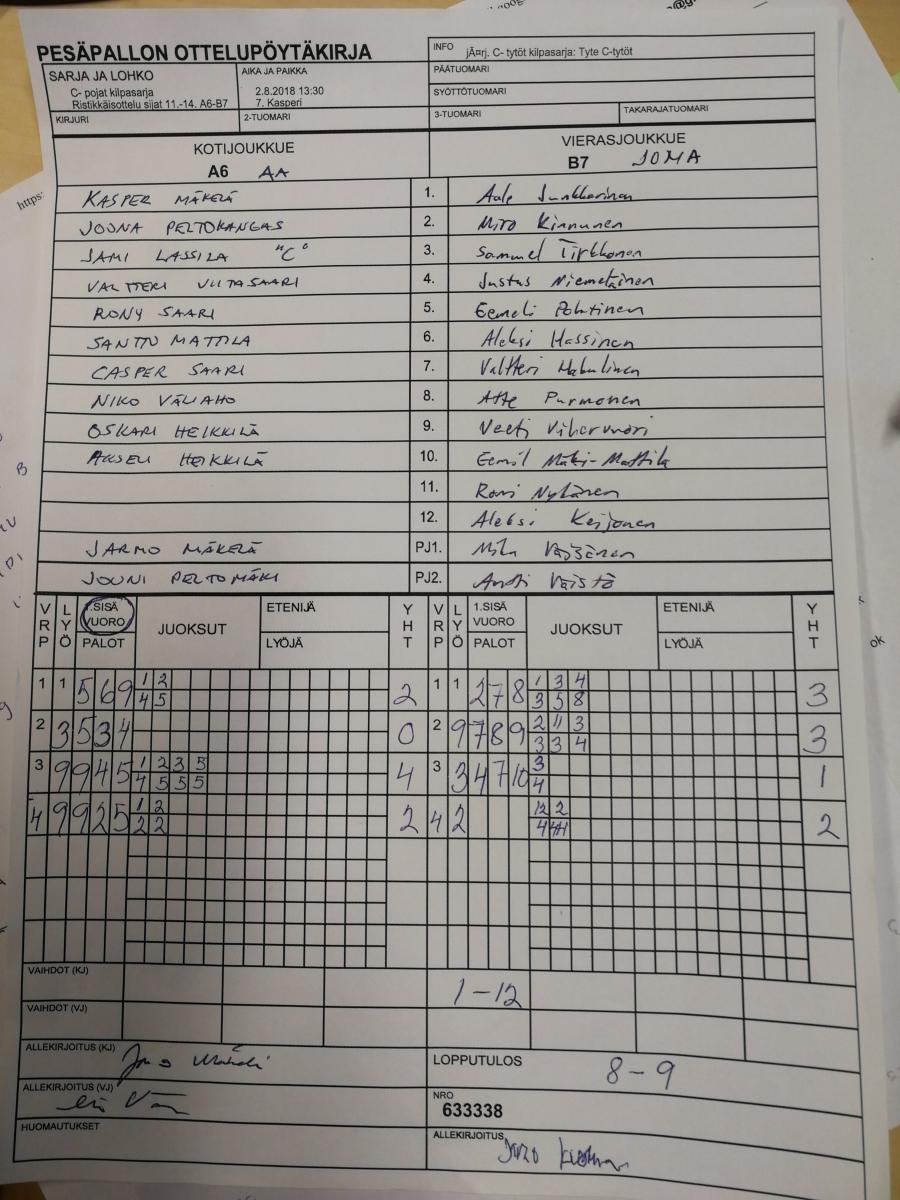 PESÄPALLON OTTELUPÖYTÄKIRJA
INFO jÃ¤rj. C- tytöt kilpasarja: Tyte C-tytöt
SARJA JA LOHKO
C- pojat kilpasarja
Ristikkäisottelu sijat 11.-14. A6-B7
AIKA JA PAIKKA
2.8.2018 13:30
7. Kasperi
PÄÄTUOMARI
SYÖTTÖTUOMARI
KIRJURI 2-TUOMARI 3-TUOMARI TAKARAJATUOMARI
KOTIJOUKKUE VIERASJOUKKUE
A6 AA B7 JOMA
KASPER MÄKELÄ 1. Junkkarinen
JOONA PELTOKANGAS 2. Miro Kinnunen
JAMI LASSILA "C" 3. Sammel Tirkkonen
VALTTERI VIITASAARI 4. Justus Niemeläinen
RONY SAARI 5. Eemeli Pohtinen
SANTTU MATTILA 6. Aleksi Hassinen
CASPER SAARI 7. Valtteri
NIKO VÄLIAHO 8. Atte Purmonen
OSKARI HEIKKILÄ 9. Veeti Vihervuori
AKSELI HEIKKILÄ 10. Eemil Mäki-Mattila
11. Roni Nykänen
12. Aleksi Keijonen
JARMO MÄKELÄ PJ1. Väisänen
JOUNI PELTOMÄKI PJ2. Antti Väistö
VRP LYÖ 1.SISÄ VUORO PALOT JUOKSUT ETENIJÄ LYÖJÄ YHT VRP LYÖ 1.SISÄ VUORO PALOT JUOKSUT ETENIJÄ LYÖJÄ YHT
1 1 5 6 9 1 2 2 1 1 2 7 8 1 3 4 3
4 5 3 5 8
2 3 5 3 4 0 2 9 7 8 9 2 11 3 3
3 3 4
3 9 9 4 5 1 2 3 5 4 3 3 4 7 10 3 1
4 5 5 5 4
4 9 9 2 5 1 2 2 4 2 12 2 2
2 2 4 4
VAIHDOT (KJ) 1-12
VAIHDOT (VJ)
ALLEKIRJOITUS (KJ)
LOPPUTULOS 8-9
ALLEKIRJOITUS (VJ)
NRO
633338
HUOMAUTUKSET
ALLEKIRJOITUS
https:
ok